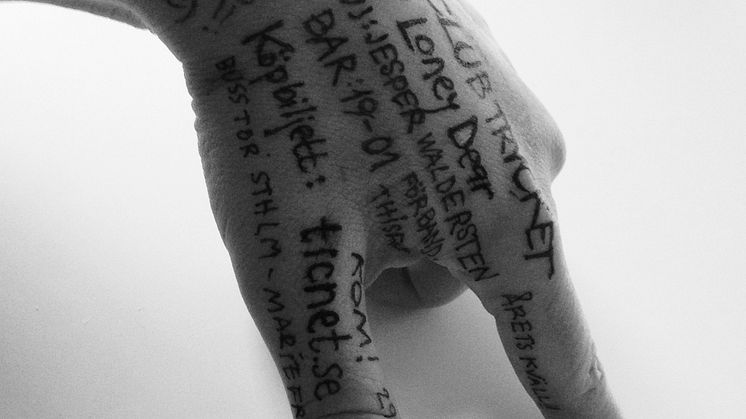 CLUB TRYCKET
Loney Dear
DJ: JESPER WALDERSTEN
FÖRBAND
BAR: 19-01
Köpbiljett:
ticnet.se
BUSS TOR STHLM - MARIEFR
KOM!
ÅRETS KVÄLL